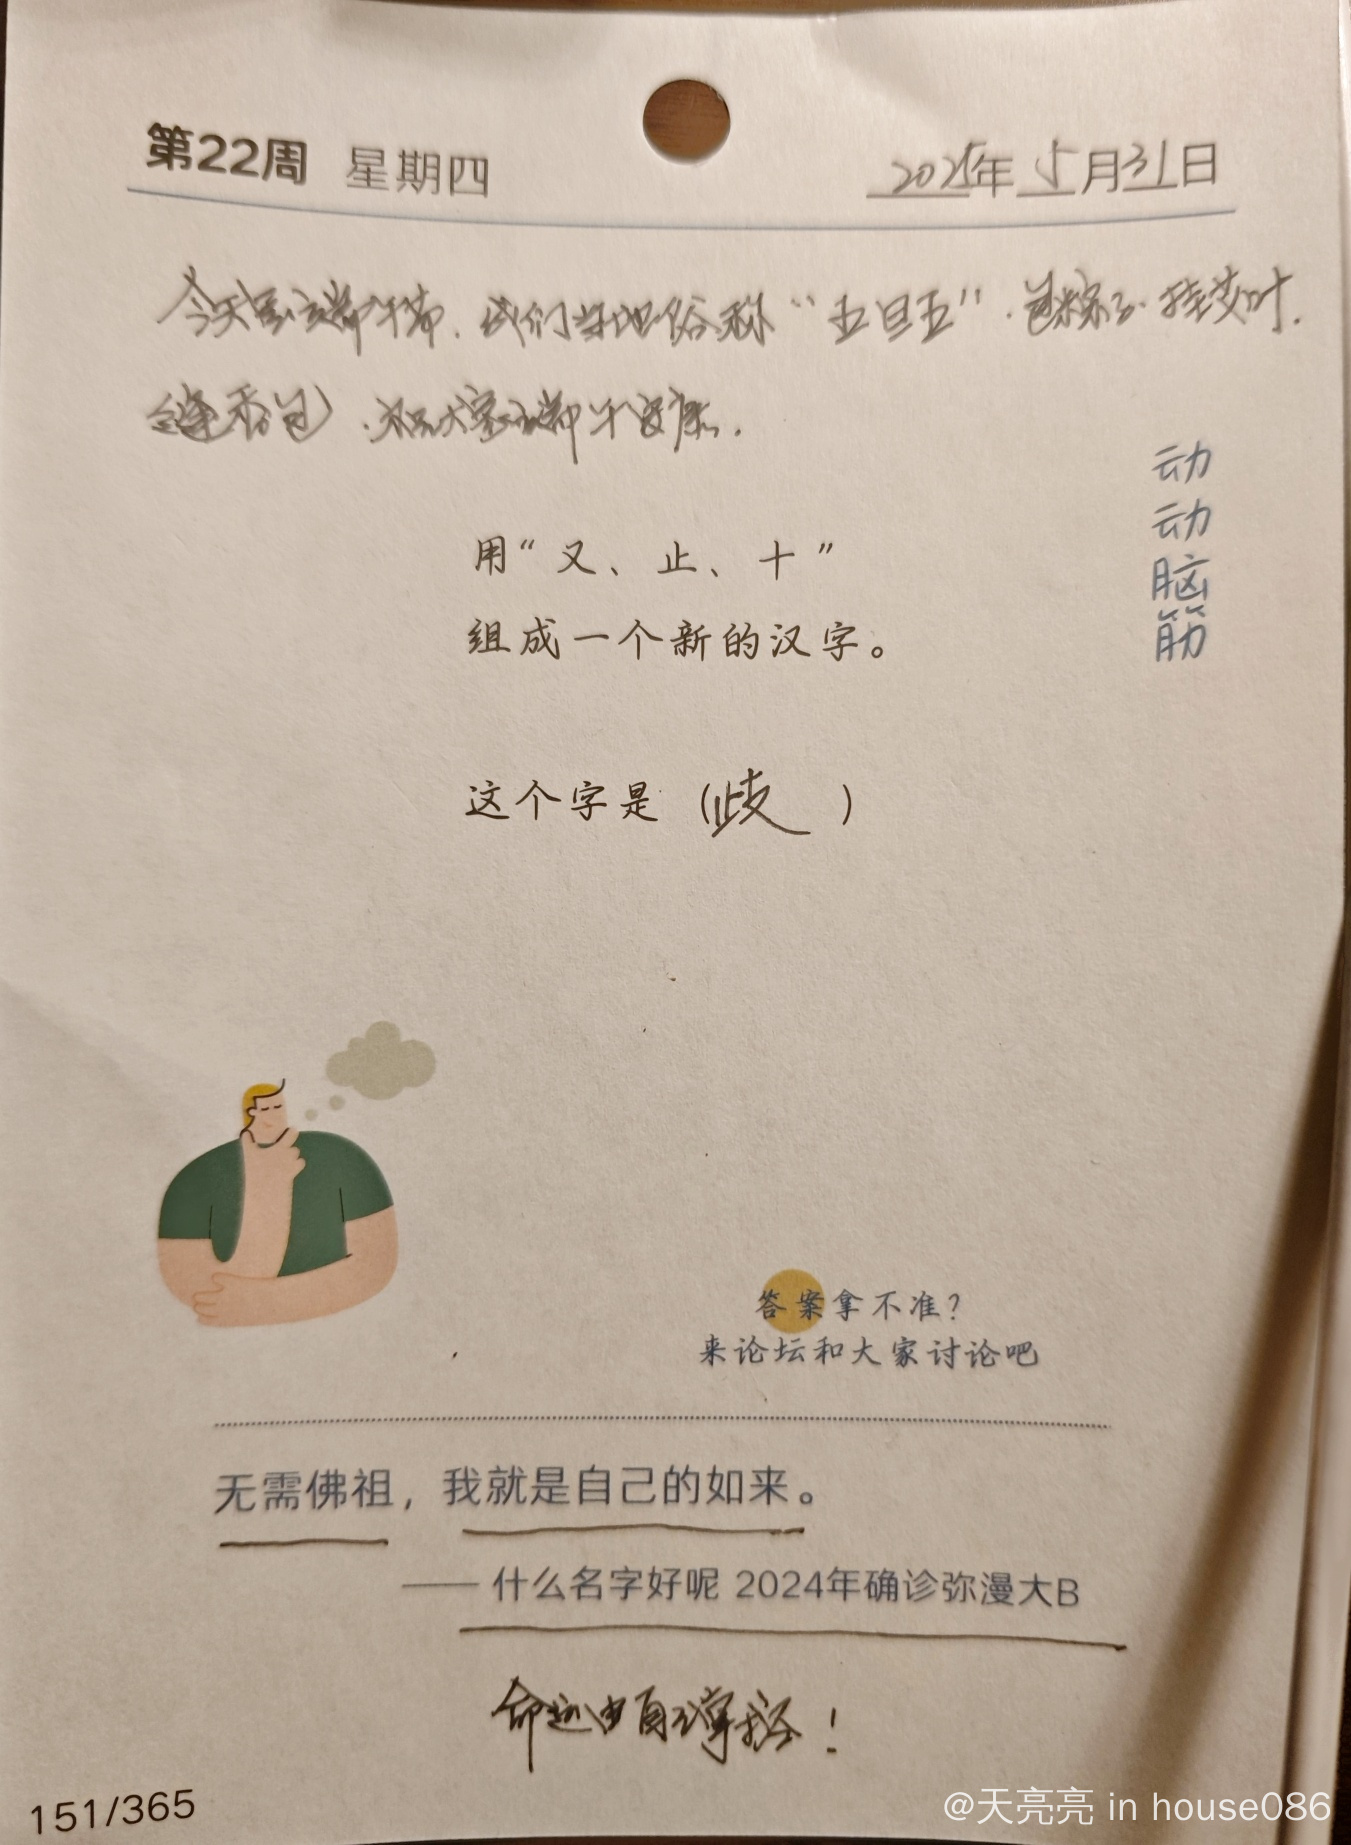 第22周 星期四 2025年5月31日
今天是端午节，我们当地俗称“五旦五”，包粽子、挂艾叶，
缝香包，祝大家端午安康。
动
动
脑
筋
用“又、止、十”
组成一个新的汉字。
这个字是（歧）
答案拿不准？
来论坛和大家讨论吧
无需佛祖，我就是自己的如来。
—— 什么名字好呢 2024年确诊弥漫大B
命运由自己掌控！
151/365
@天亮亮 in house086